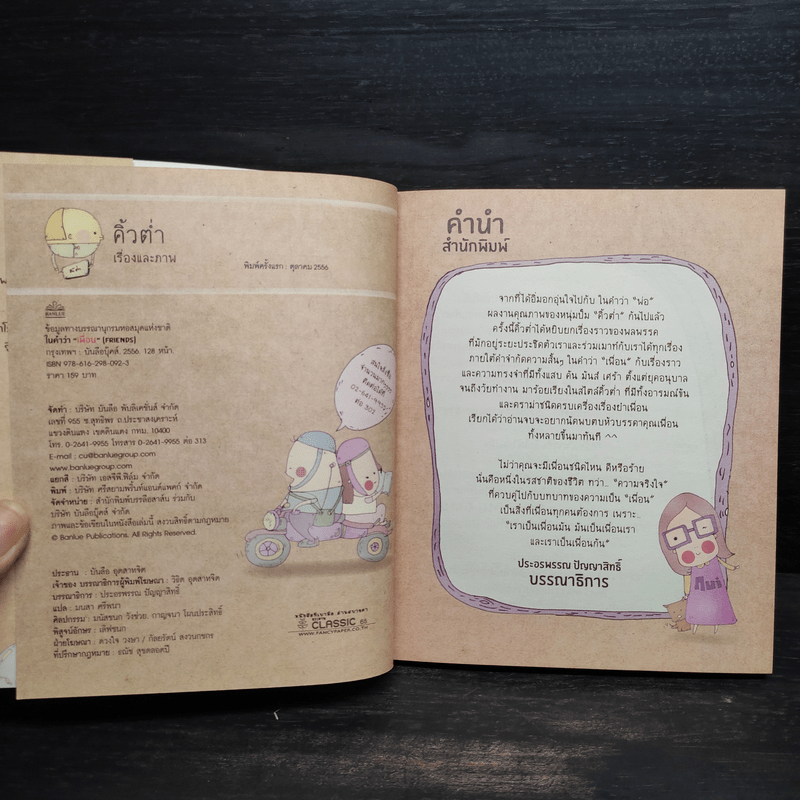 คิ้วต่ำ
เรื่องและภาพ
พิมพ์ครั้งแรก : ตุลาคม 2556
BANLUE
ข้อมูลทางบรรณานุกรมหอสมุดแห่งชาติ
ในคำว่า "เพื่อน" (FRIENDS)
กรุงเทพฯ : บันลือบุ๊คส์, 2556. 128 หน้า.
ISBN 978-616-298-092-3
ราคา 159 บาท.
จัดทำ : บริษัท บันลือ พับลิเคชั่นส์ จำกัด
เลขที่ 955 ซ.สุทธิพร ถ.ประชาสงเคราะห์
แขวงดินแดง เขตดินแดง กทม. 10400
โทร. 0-2641-9955 โทรสาร 0-2641-9955 ต่อ 313
E-mail : cu@banluegroup.com
www.banluegroup.com
แยกสี : บริษัท เอสจีพี.ฟิล์ม จำกัด
พิมพ์ : บริษัท ศรีสยามพริ้นท์แอนด์แพคก์ จำกัด
จัดจำหน่าย : สำนักพิมพ์บรรลือสาส์น ร่วมกับ
บริษัท บันลือบุ๊คส์ จำกัด
ภาพและข้อเขียนในหนังสือเล่มนี้ สงวนสิทธิ์ตามกฎหมาย
© Banlue Publications. All Rights Reserved.
ประธาน : บันลือ อุตสาหจิต
เจ้าของ บรรณาธิการผู้พิมพ์โฆษณา : วิธิต อุตสาหจิต
บรรณาธิการ : ประอรพรรณ ปัญญาสิทธิ์
แปล : มนสา ศรีพนา
ศิลปกรรม : มนัสชนก วังช่วย, กาญจนา โฒนประสิทธิ์
พิสูจน์อักษร : เด็ฟชนก
ฝ่ายโฆษณา : ดวงใจ วงษา / ก้อยรัตน์ สงวนกชกร
ที่ปรึกษากฎหมาย : ธณัช สุขตลอดปี
สนใจสั่งซื้อ
จำนวนมากราคาพิเศษ
ติดต่อได้ที่
02-641-9955
ต่อ 301
CLASSIC 65
WWW.FANCYPAPER.CO.TH
คำนำ
สำนักพิมพ์
จากที่ได้อิ่มอกอุ่นใจไปกับ ในคำว่า "พ่อ"
ผลงานคุณภาพของหนุ่มปั๋ม "คิ้วต่ำ" กันไปแล้ว
ครั้งนี้คิ้วต่ำได้หยิบยกเรื่องราวของพลพรรค
ที่มักอยู่ระยะประชิดตัวเราและร่วมเมาท์กับเราได้ทุกเรื่อง
ภายใต้คำจำกัดความสั้นๆ ในคำว่า "เพื่อน" กับเรื่องราว
และความทรงจำที่มีทั้งแสบ คัน มันส์ เศร้า ตั้งแต่ยุคอนุบาล
จนถึงวัยทำงาน มาร้อยเรียงในสไตล์คิ้วต่ำ ที่มีทั้งอารมณ์ขัน
และดราม่าชนิดครบเครื่องเรื่องยำเพื่อน
เรียกได้ว่าอ่านจบจะอยากนัดพบตบหัวบรรดาคุณเพื่อน
ทั้งหลายขึ้นมาทันที ^^
ไม่ว่าคุณจะมีเพื่อนชนิดไหน ดีหรือร้าย
นั่นคือหนึ่งในรสชาติของชีวิต ทว่า.. "ความจริงใจ"
ที่ควบคู่ไปกับบทบาทของความเป็น "เพื่อน"
เป็นสิ่งที่เพื่อนทุกคนต้องการ เพราะ..
"เราเป็นเพื่อนมัน มันเป็นเพื่อนเรา
และเราเป็นเพื่อนกัน"
ประอรพรรณ ปัญญาสิทธิ์
บรรณาธิการ